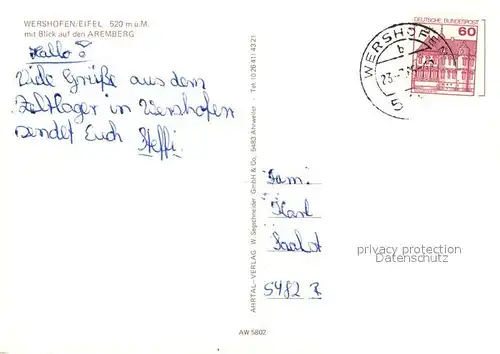 WERSHOFEN/EIFEL 520 m ü.M.
mit Blick auf den AREMBERG
Hallo!
Viele Grüße aus dem
Zeltlager in Wershofen
sendet Euch Steffi.
AHRTAL-VERLAG W. Segschneider GmbH & Co., 5483 Ahrweiler - Tel. (0 26 41) 43 21
WERSHOFEN
b
23.
5
DEUTSCHE BUNDESPOST
60
Fam.
Karl
5482
privacy protection
Datenschutz
AW 5802